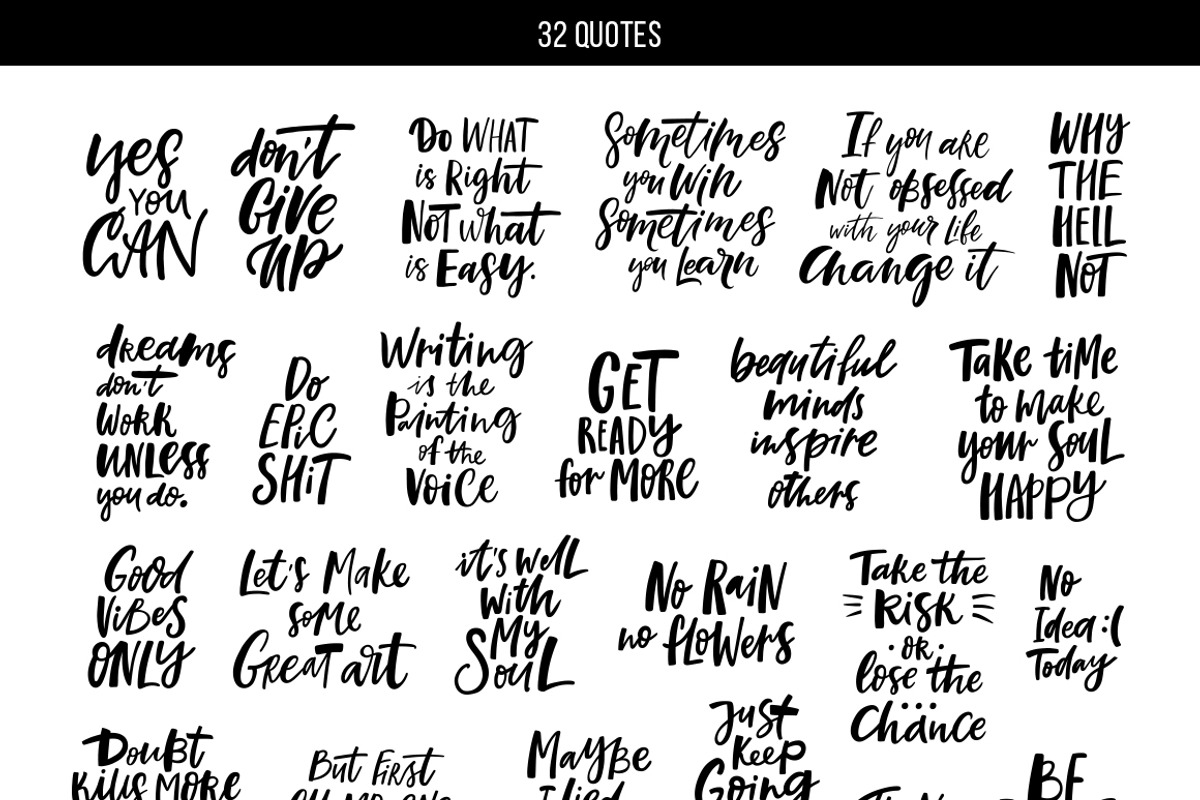 32 QUOTES
yes
YOU
CAN
don't
GiVE
UP
Do WHAT
is Right
NOT what
is Easy.
Sometimes
you Win
Sometimes
you Learn
If you are
Not obsessed
with your Life
Change it
WHY
THE
HELL
NOT
dreams
don't
Work
UNLess
you do.
Do
EPiC
SHiT
Writing
is the
Painting
of the
VoiCe
GET
READY
for MORE
beautiful
minds
inspire
others
Take tiMe
to make
your SouL
HAPPY
Good
ViBeS
ONLY
Let's Make
soMe
Great art
it's weLL
With
My
SouL
No RaiN
no fLoWeRs
Take the
RiSK
OR
lose the
Chance
No
Idea :(
Today
DouBt
KiLLS MORE
But FiRST
MayBe
I lied
Just
Keep
Going
BE